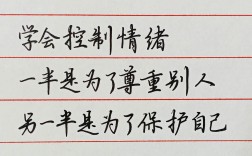 学会控制情绪
一半是为了尊重别人
另一半是为了保护自己